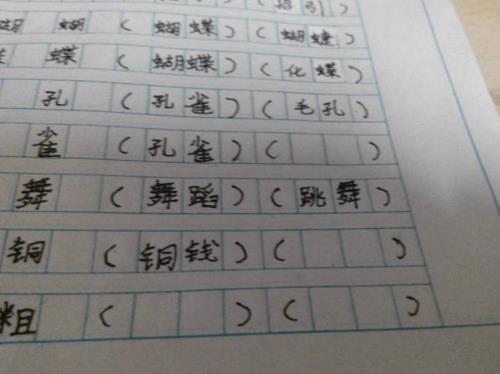 （招引）
蝴（蝴蝶）（蝴蝶）
蝶（蝴蝶）（化蝶）
孔（孔雀）（毛孔）
雀（孔雀）（ ）
舞（舞蹈）（跳舞）
铜（铜钱）（ ）
粗（ ）（ ）